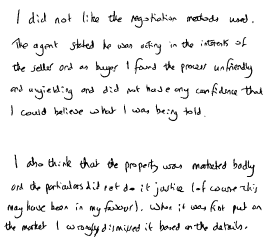 I did not like the negotiation methods used.
The agent stated he was acting in the interests of
the seller and as buyer I found the process unfriendly
and unyielding and did not have any confidence that
I could believe what I was being told.
I also think that the property was marketed badly
and the particulars did not do it justice (of course this
may have been in my favour). When it was first put on
the market I wrongly dismissed it based on the details.